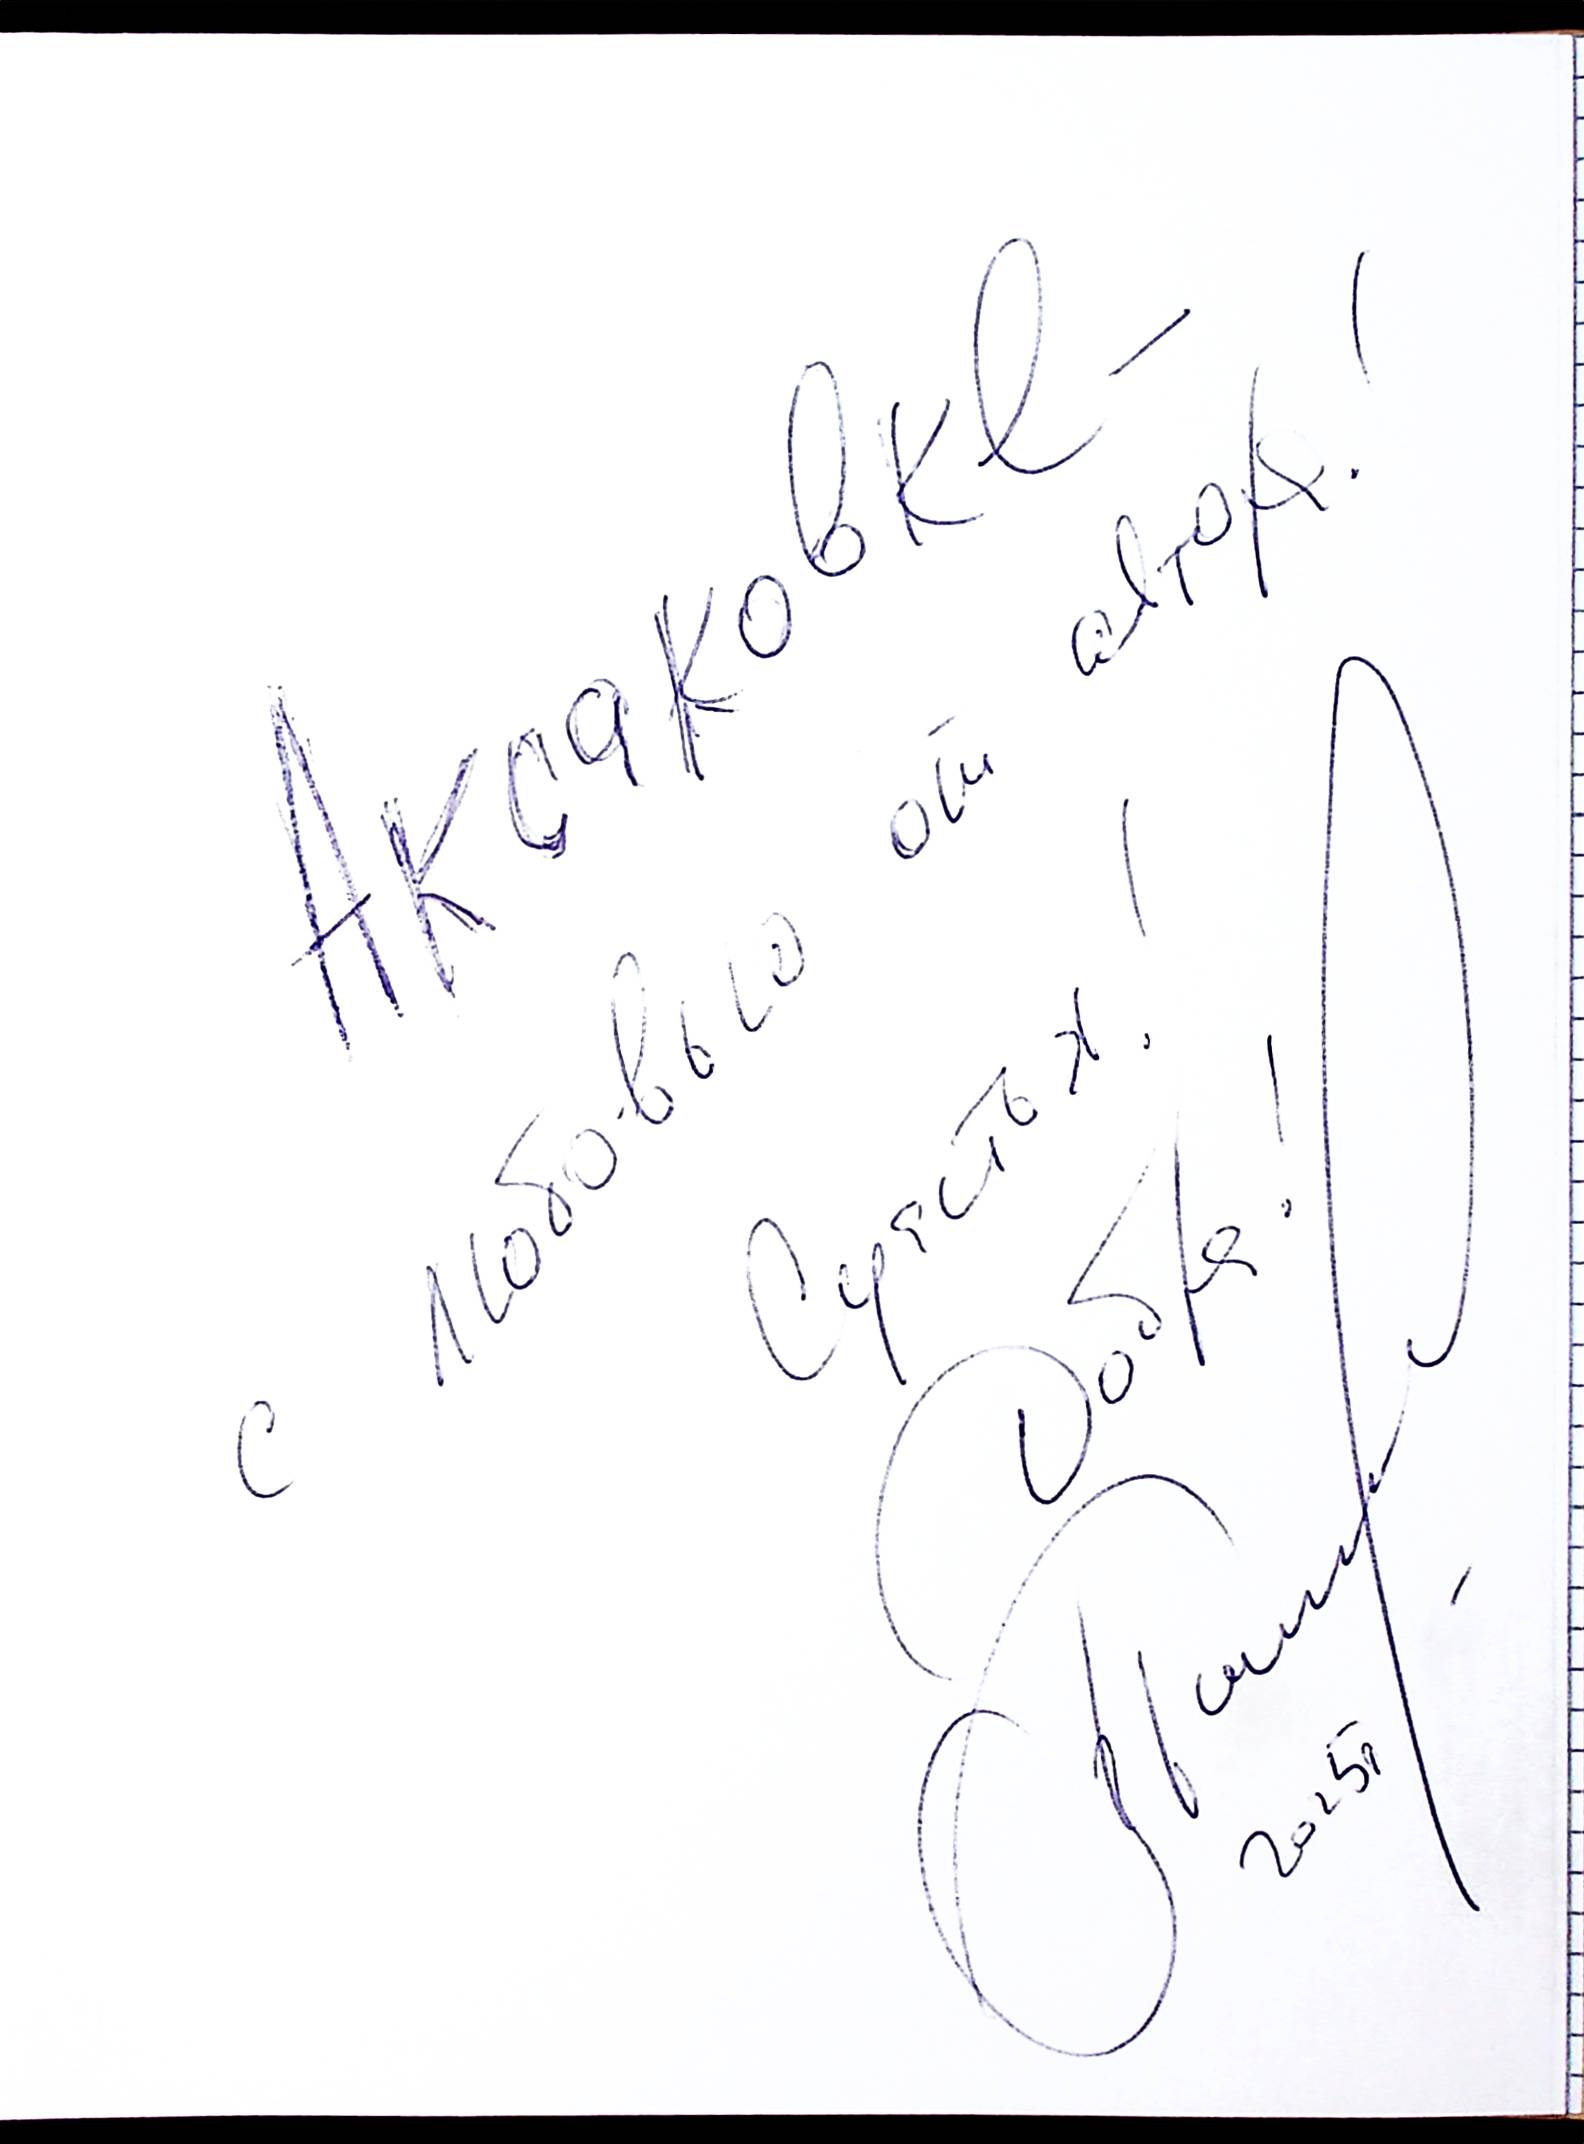 Аксаковке -
с любовью от автора!
Счастья!
Добра!
2025г